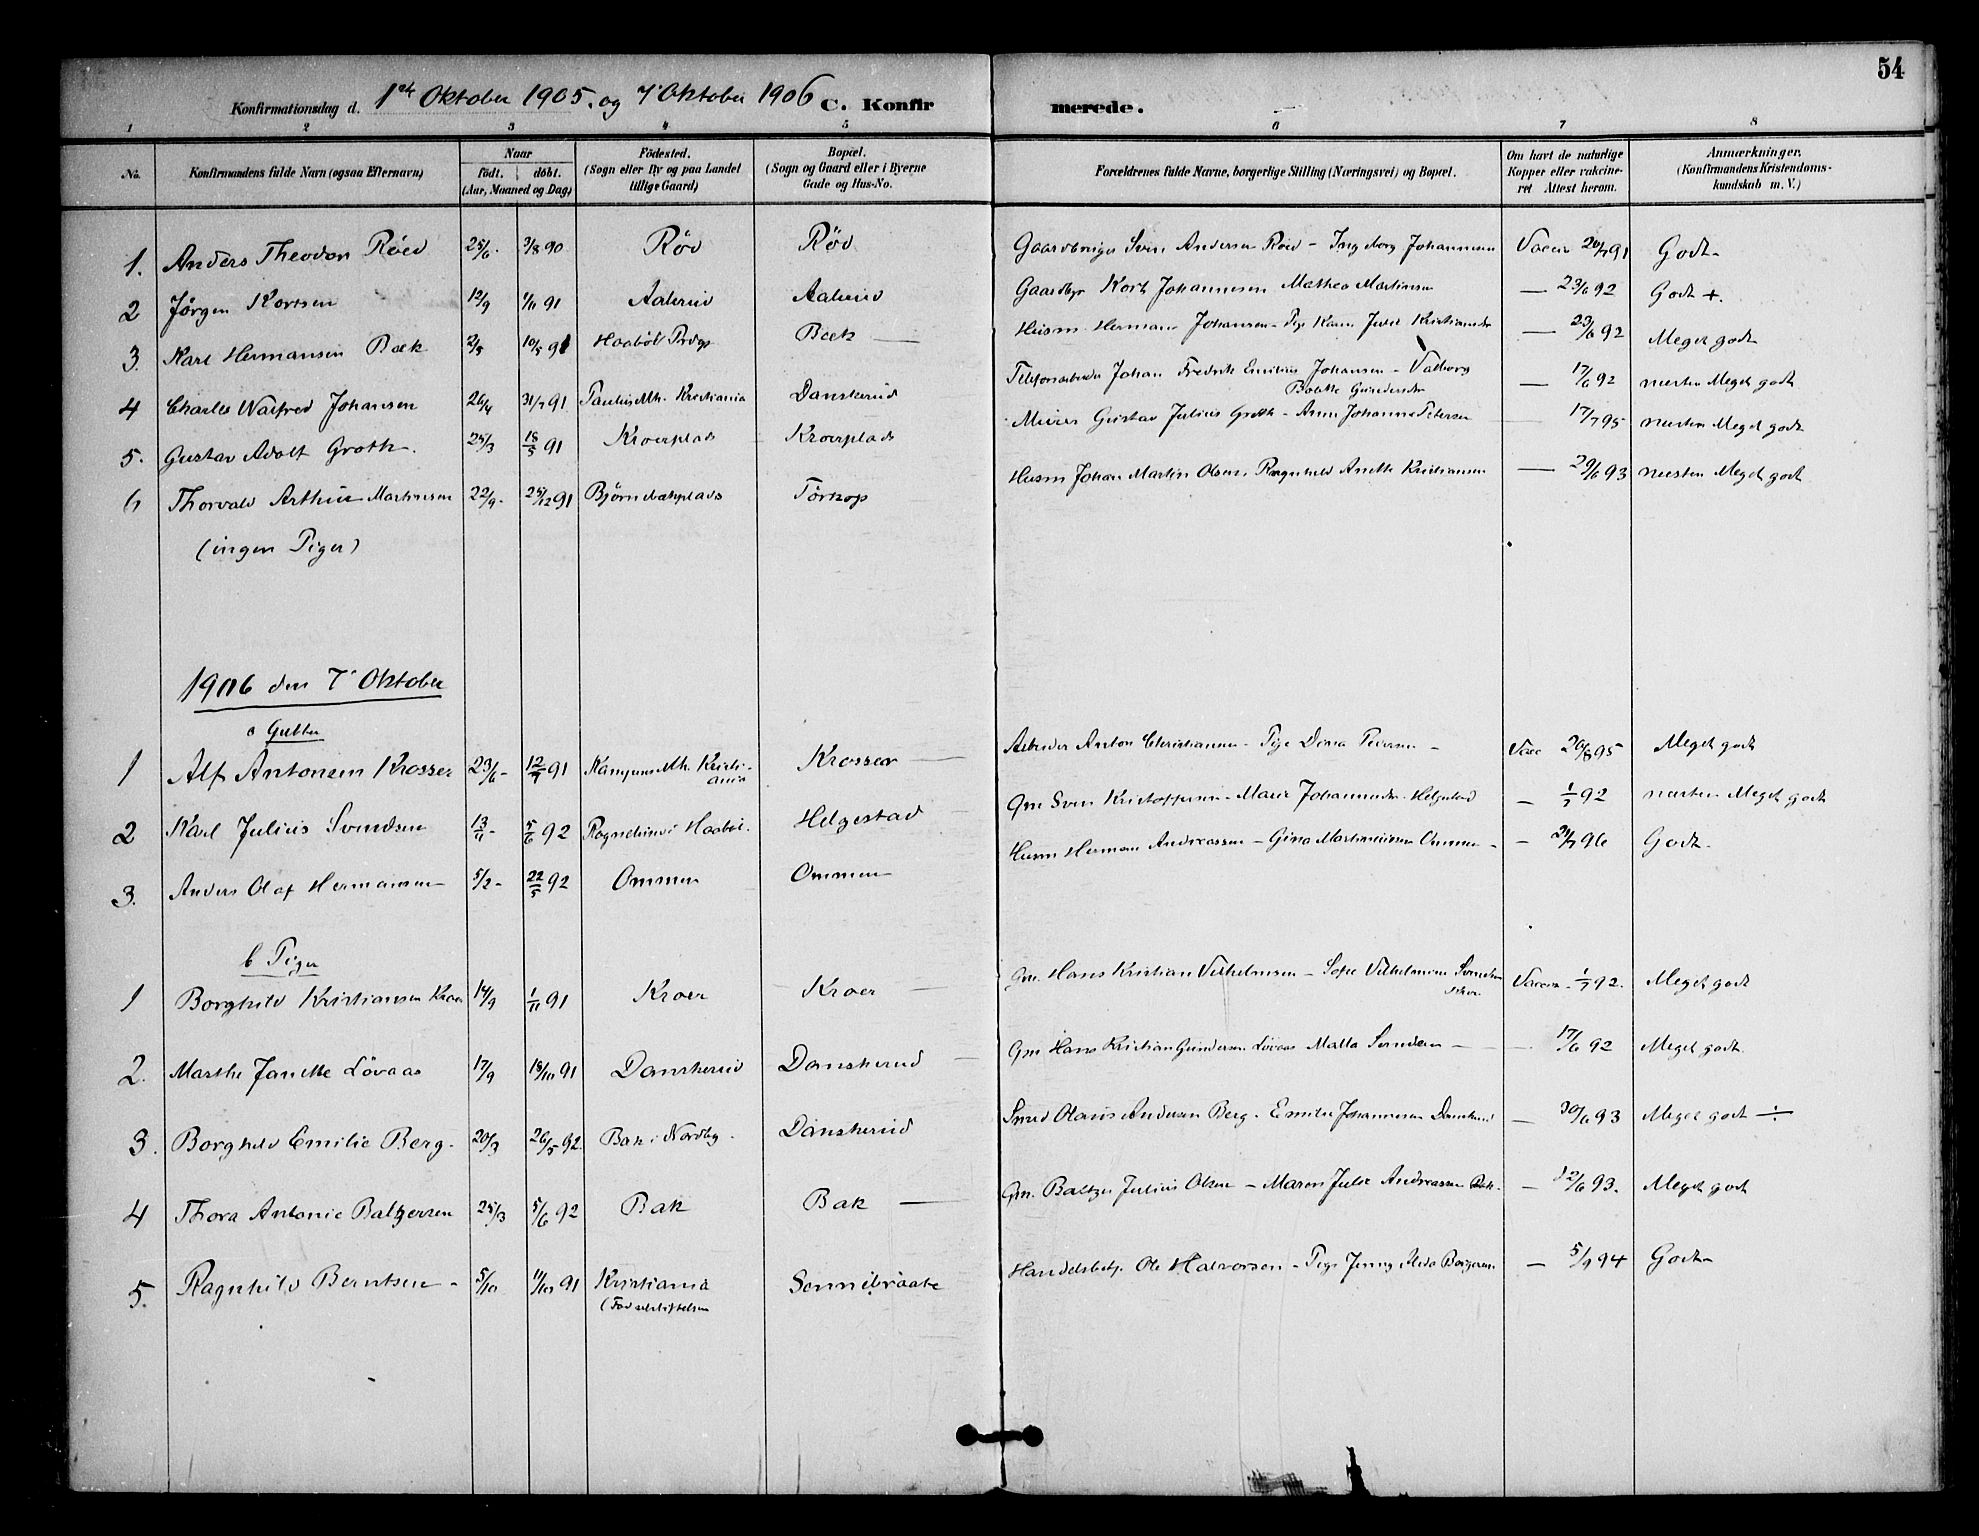 54
Konfirmationsdag d. 1ste Oktober 1905. og 7' Oktober 1906 C. Konfirmerede.
1 2 3 4 5 6 7 8
No. Konfirmandens fulde Navn (ogsaa Efternavn) Naar født. døbt. (Aar, Maaned og Dag) Fødested. (Sogn eller By og paa Landet tillige Gaard) Bopæl. (Sogn og Gaard eller i Byerne Gade og Hus-No. Forældrenes fulde Navne, borgerlige Stilling (Næringsvei) og Bopæl. Om havt de naturlige Kopper eller vakcineret Attest herom. Anmærkninger, (Konfirmandens Kristendomskundskab m. V.)
1. Anders Theodor Röed 25/6. 3/8 90 Röd Röd Gaardbruger Sven Andersen Röed - Ingeborg Johannesen Vaccin 91 Godt
2 Jørgen Kortsen 12/9 1/11 91 Aaberud Aaberud Gaardbr Kort Johannesen Mathea Martinsen — 23/6 92 Godt +.
3. Karl Hermansen Bæk 10/5 91 Haabøl Bæk — Husm. Herman Johansen - Pige Karen Julie Kristiansdr — 23/6 92 Meget godt
4 Charles Walfred Johansen 26/4 31/7 91 Paulus Mh. Kristiania Danskerud Telefonarbeider Johan Fredrik Emilius Johansen - Valborg Gundersdr — 17/6 92 næsten Meget godt
5. Gustav Adolf Groth. 25/3 18/5 91 Kroerplads Kroerplads Murer Gustav Julius Groth - Anne Johanne Petersen — 17/7 95 næsten Meget godt
6 Thorvald Arthur Martinsen 22/9. 25/12 91 Björnebækplads Törkop Husm Johan Martin Olsen, Ragnhild Anette Kristiansen — 29/6 93 næsten Meget godt
(ingen Piger)
1906 den 7' Oktober
a Gutter
1 Alf Antonsen Krosser 23/6 - 12/9 91 Kampens Mh. Kristiania Krosser — Arbeider Anton Christiansen - Pige Dina Pedersen - Vacc 20/8 95 Meget godt
2 Karl Julius Svendsen 13/11 5/6 92 i Haabøl. Helgestad Gm Sven Kristoffersen - Marie Johannesdr. Helgestad — 1/7 92 næsten Meget godt
3. Anders Olaf Hermansen 5/2 - 22/5 92 Ommen Ommen Husm Herman Andreassen - Gina Ommen - — 96 Godt.
b Piger
1 Borghild Kristiansen Kroer 14/9 1/11 91 Kroer Kroer — Gm. Hans Kristian Vilhelmsen - Sofie Vilhelmine Svendsen Vaccin - 1/7 92. Meget godt
2. Marthe Janette Lövaas 17/9 18/10 91 Danskerud Danskerud — Gm Hans Kristian Gundersen Lövaas Malla Svendsen - 17/6 92 Meget godt.
3. Borghild Emilie Berg. 20/3 26/5 92. Bak i Nordby. Danskerud Smed Olaus Andersen Berg. Emilie Johannesen Danskerud — 30/6 93 Meget godt ÷
4 Thora Antonie Baltzersen 25/3 5/6 92 Bak Bak — Gm. Baltzer Julius Olsen - Maren Julie Andreassen Bak. — 12/6 93. Meget godt
5. Ragnhild Berntsen - 5/10 11/10 91 Kristiania (Fødselsstiftelsen Sønnebraate Handelsbetj. Ole Halvorsen - Pige Jenny — 5/9 94 Godt